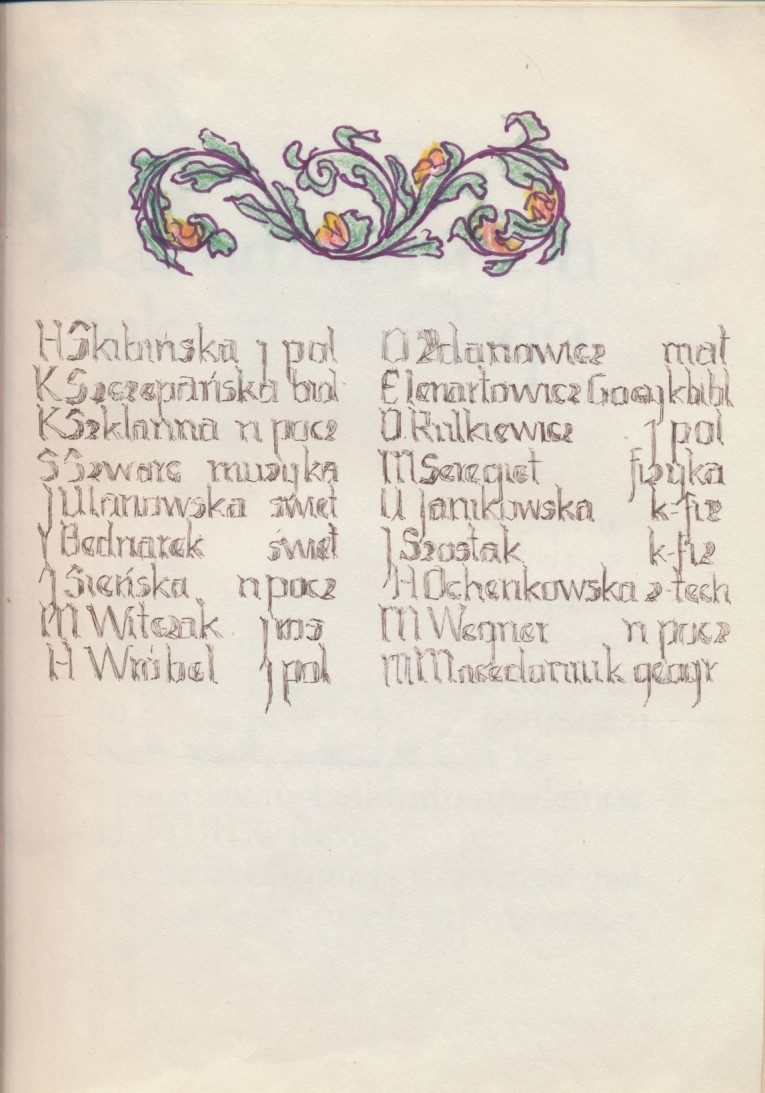 H Skibińska j pol
K Szczepańska biol
K Szklanna n pocz
S Szwarc muzyka
J Ulanowska świet
Y Bednarek świet
J Sieńska n pocz
M Witczak j ros
H Wróbel j pol
D Zdanowicz mat
E Lenartowicz bibl
D Rulkiewicz j pol
M Seregiet fizyka
U Janikowska k-fiz
J Szostak k-fiz
H Ochenkowska z-tech
M Wegner n pocz
M geogr